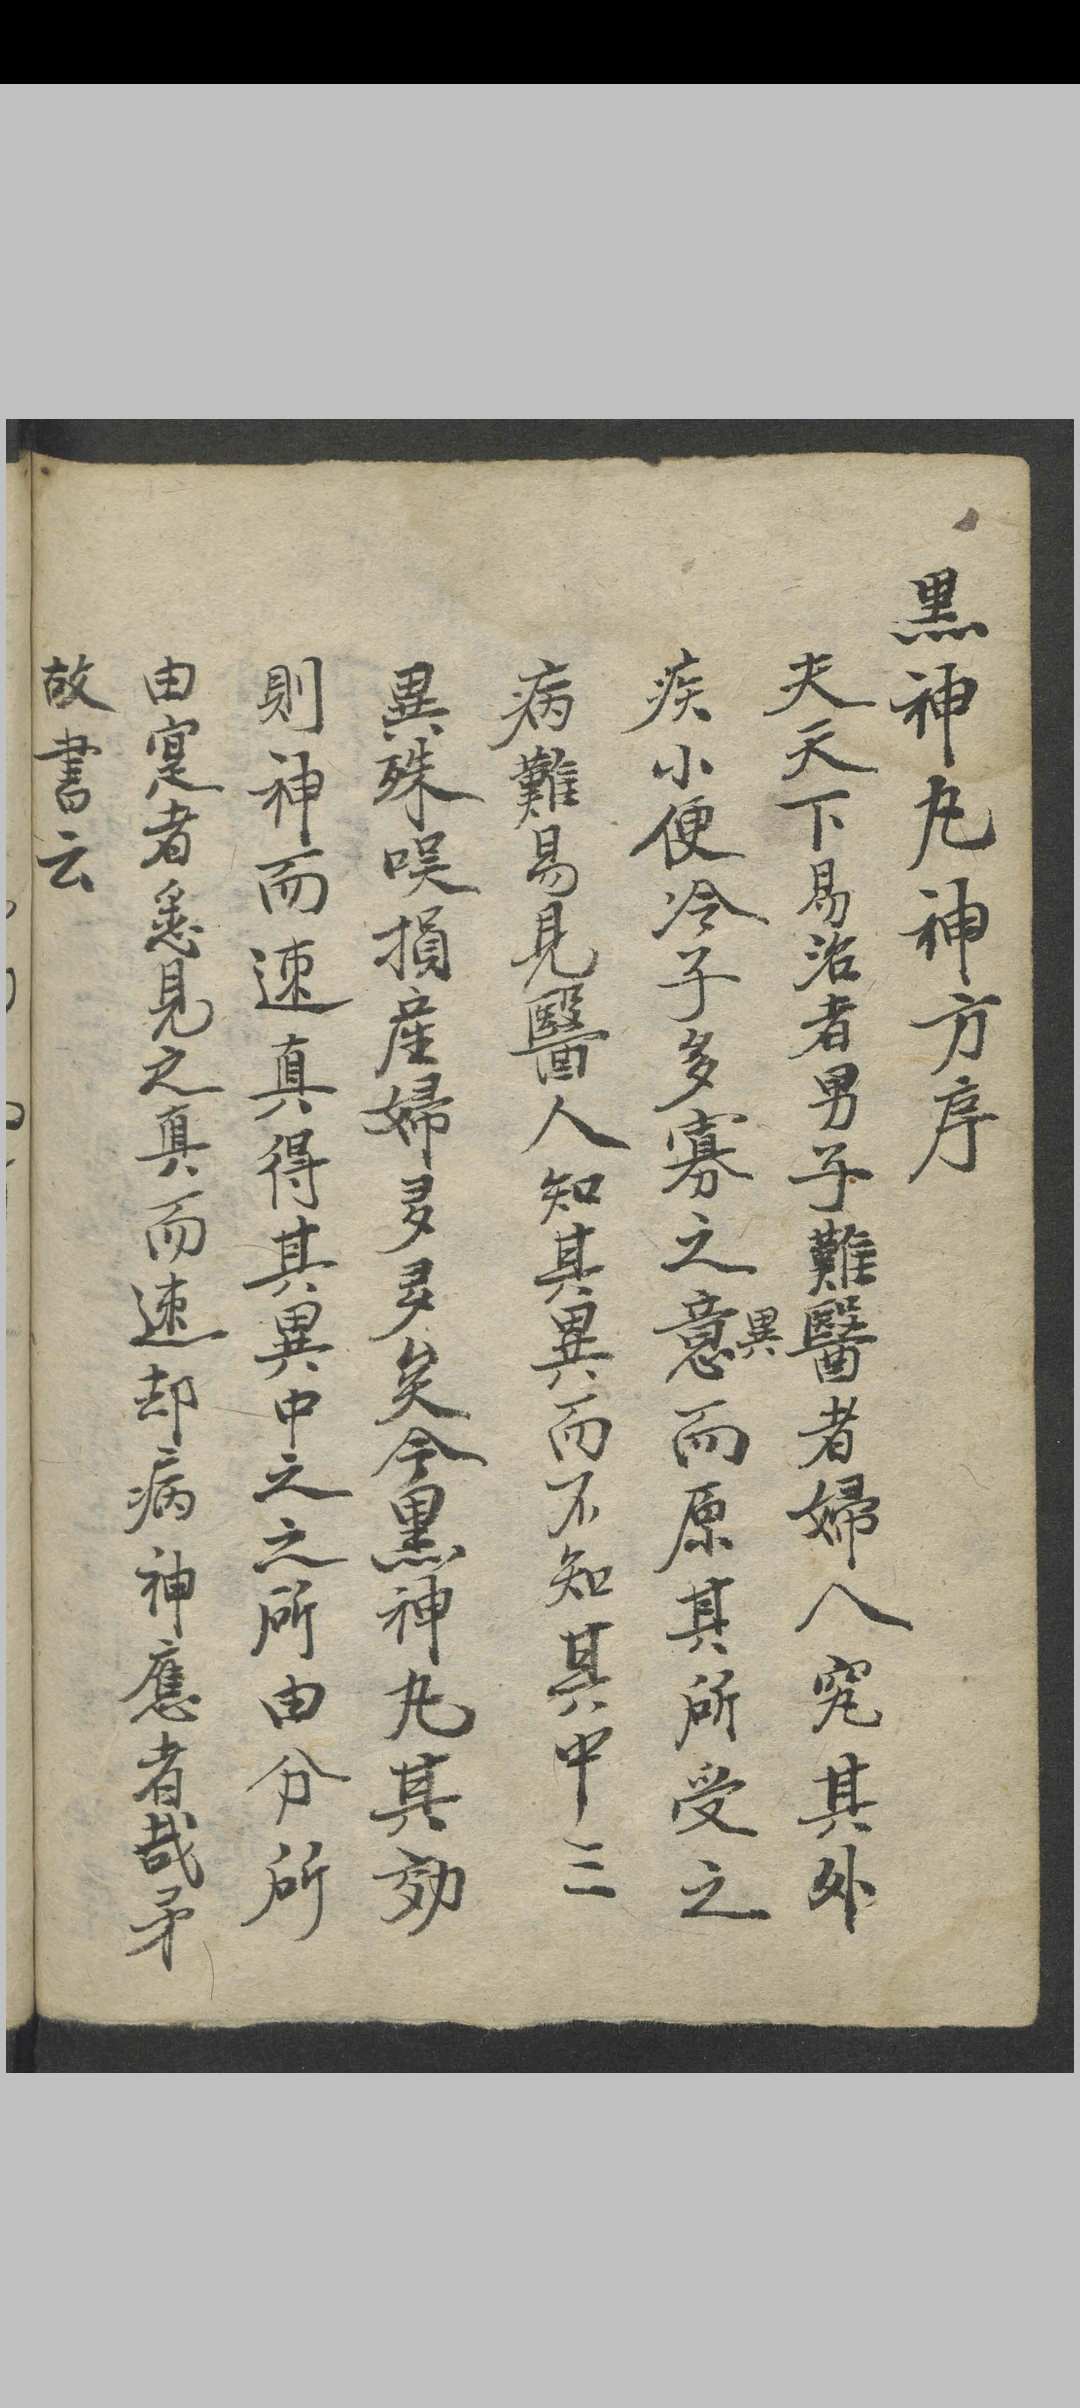 黒神丸神方序
夫天下易治者男子難醫者婦人究其外
疾小便冷子多寡之意異而原其所受之
病難易見醫人知其異而不知其中三
異殊唉損産婦多多矣今黒神丸其効
則神而速真得其異中之之所由分所
由寔者悉見之真而速却病神應者哉矛
故書云